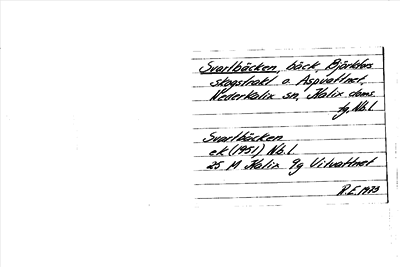 Svartbäcken, bäck, Björkfors
skogstrakt o. Aspvattnet,
Nederkalix sn, Kalix doms.
fg, Nb.l.
Svartbäcken
ek (1951) Nb.l.
25 M Kalix 9g Vitvattnet
R.E. 1973